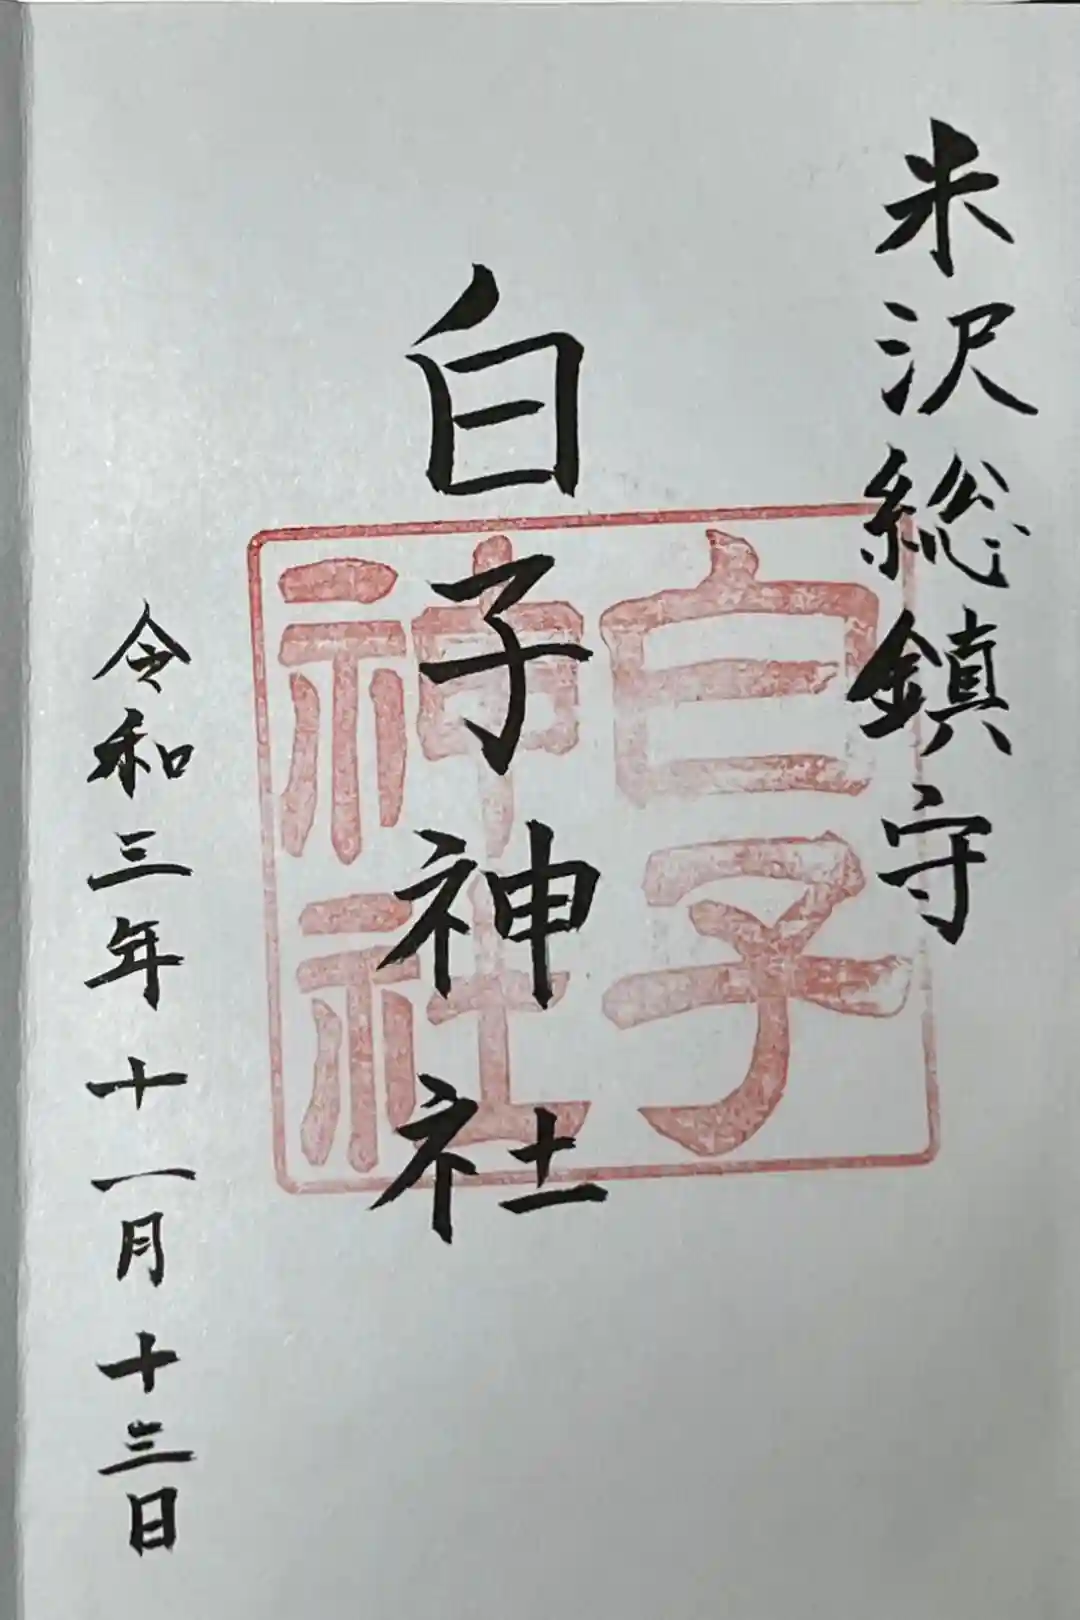 米沢総鎮守
白子神社
白子
神社
令和三年十一月十三日